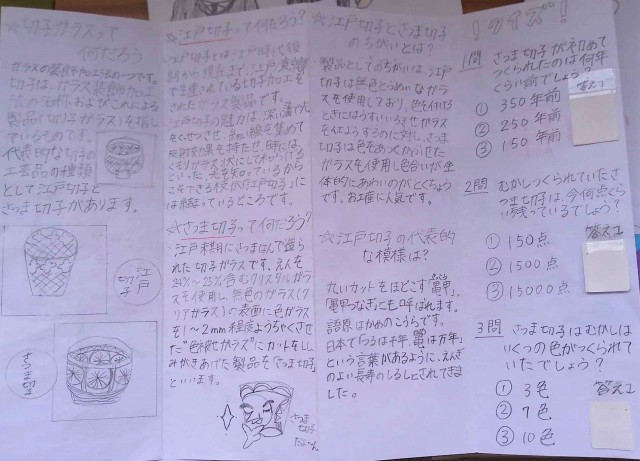 切子ガラスって
何だろう
ガラスの装飾加工法の一つです。
切子は、ガラス装飾加工
法のそれおよびこれによる
製品(切子ガラス)を指し
ているものです。
代表的な切子
工芸品の種類
として江戸切子と
さつま切子があります。
江戸
切子
さつま切子
☆江戸切子って何だろう?
江戸切子とは江戸時代後
期から現在まで、江戸・東京
で生産されている切子加工を
されたガラス製品です。
江戸切子の魅力は、深い溝や
といった、光を知っているから
こそできる技が「江戸切子」に
は結まっているどころです。
☆さつま切子って何だろう?
江戸末期にさつまはんで造ら
れた切子ガラスです。えんを
24%~25%含むクリスタルガラ
スを使用し無色のガラス(ク
リアガラス)の表面に色ガラス
を1~2mm程度ようちゃくさせ
た"色被せガラス"にカットをし、
みがきあげた製品を「さつま切子」
といいます。
さつま
切子
☆江戸切子とさつま切子
のちがいとは?
製品としてのちがいは、江戸
切子は無色とうめいなガラ
スを使用しており、色を付ける
ときにはうすいいろきせガラス
をくわえようするのに対し、さつま
切子は色をあつくかぶせた
ガラスを使用し色合いが全
体的にあわいのがとくちょう
です。お土産に人気です。
☆江戸切子の代表的
な模様は?
丸いカットをほどこす「亀甲」、
「亀甲つなぎ」とも呼ばれます。
語原はかめのこうらです。
日本で「つるは千年、亀は万年」
という言葉があるように、えんぎ
のよい長寿のしるしとされてきま
した。
!クイズ!
1問 さつま切子が初めて
つくられたのは何年
くらい前でしょう?
① 350年前
② 250年前
③ 150年前
答え↓
2問 むかしつくられていたさ
つま切子は、今何点くら
い残っているでしょう?
① 150点
② 1500点
③ 15000点
答え↓
3問 さつま切子はむかしは
いくつの色がつくられて
いたでしょう?
① 3色
② 7色
③ 10色
答え↓